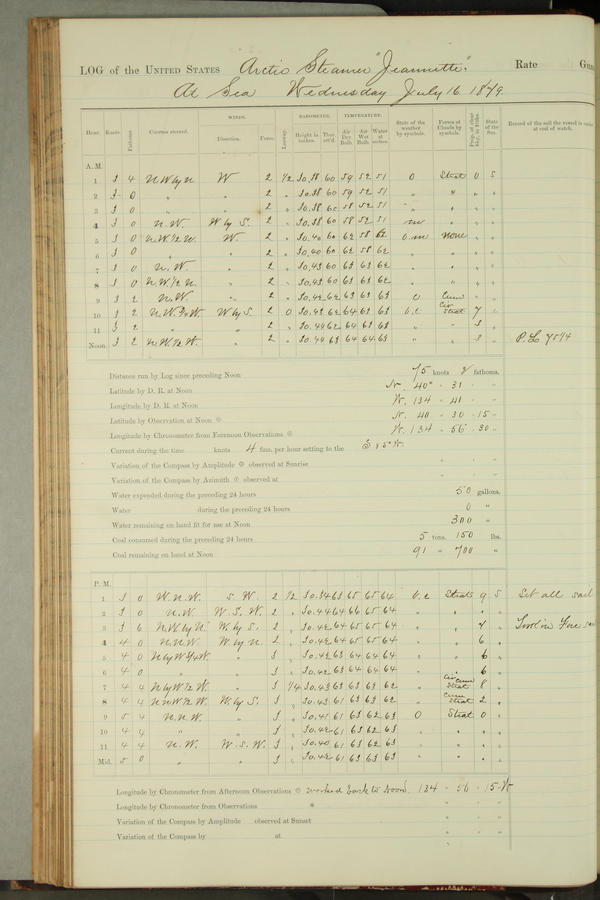 LOG of the UNITED STATES Arctic Steamer "Jeannette", Rate Gun
At Sea Wednesday July 16 1879.
Hour. Knots. Fathoms. Courses steered. WINDS. Direction. Force. Leeway. BAROMETER. Height in inches. Ther. att'd. TEMPERATURE. Air Dry Bulb. Air Wet Bulb. Water at surface. State of the weather by symbols. Forms of Clouds by symbols. Prop. of clear sky, in tenths. State of the Sea. Record of the sail the vessel is under at end of watch.
A. M.
1 3 4 NW by N W 2 1/2 30.38 60 59 52 51 O Strat 0 S
2 3 0 " " 2 " 30.38 60 59 52 51 " " " "
3 3 0 " " 2 " 30.38 60 58 52 51 " " " "
4 3 0 N.W. W by S. 2 " 30.38 60 58 52 51 m " " "
5 3 0 N.W.1/2 N. W 2 " 30.40 60 62 58 62 o.m None " "
6 3 0 " " 2 " 30.40 60 62 58 62 " " " "
7 3 0 N.W. " 2 " 30.43 60 63 63 62 " " " "
8 3 0 N.W.1/2 N. " 2 " 30.43 60 63 63 62 " " " "
9 3 2 N.W. " 2 " 30.42 62 63 63 63 O Cum " "
10 3 2 N.W.3/4 W. W by S. 2 0 30.43 62 64 63 63 b.c Cir Strat 7 "
11 3 2 " " 2 " 30.44 62 64 63 63 " " 3 "
Noon. 3 2 N.W.1/2 W. " 2 " 30.44 63 64 64 63 " " 3 " P.L. 75 1/4
Distance run by Log since preceding Noon 75 knots 8 fathoms.
Latitude by D. R. at Noon N. 40° 31 "
Longitude by D. R. at Noon W. 134 41 "
Latitude by Observation at Noon N. 40 30 15 "
Longitude by Chronometer from Forenoon Observations W. 134 56 30 "
Current during the time knots 4 fms. per hour setting to the S 85° W.
Variation of the Compass by Amplitude observed at Sunrise
Variation of the Compass by Azimuth observed at
Water expended during the preceding 24 hours 50 gallons.
Water during the preceding 24 hours 0 "
Water remaining on hand fit for use at Noon 300 "
Coal consumed during the preceding 24 hours 5 tons. 150 lbs.
Coal remaining on hand at Noon 91 " 700 "
P. M.
1 3 0 W.N.W. S.W. 2 1/2 30.34 63 65 65 64 b.c Strat 9 S Set all sail
2 3 0 N.W. W.S.W. 2 " 30.44 64 66 65 64 " " " "
3 3 6 N.W. by N. W. by S. 2 " 30.42 64 65 65 64 " " 7 "
4 4 0 N.N.W. W. by N. 2 " 30.42 64 65 65 64 " " 6 "
5 4 0 N by W 3/4 W. " 3 " 30.42 63 64 64 64 " " 6 "
6 4 0 " " 3 " 30.42 63 64 64 64 " " 6 "
7 4 4 N by W 1/2 W. " 3 1/4 30.43 63 63 63 62 " Cir Cum Strat 8 "
8 4 4 N N W 1/2 W. W. by S. 3 " 30.43 61 63 63 62 " Cum Strat 2 "
9 5 4 N.N.W. " 3 " 30.41 61 63 62 63 O Strat 0 "
10 4 4 " " 3 " 30.42 61 63 62 63 " " " "
11 4 4 N.W. W.S.W. 3 " 30.40 61 63 62 63 " " " "
Mid. 5 0 " " 3 " 30.42 61 63 63 63 " " " "
Longitude by Chronometer from Afternoon Observations worked back to Noon. 134 56 15 W
Longitude by Chronometer from Observations
Variation of the Compass by Amplitude observed at Sunset
Variation of the Compass by at